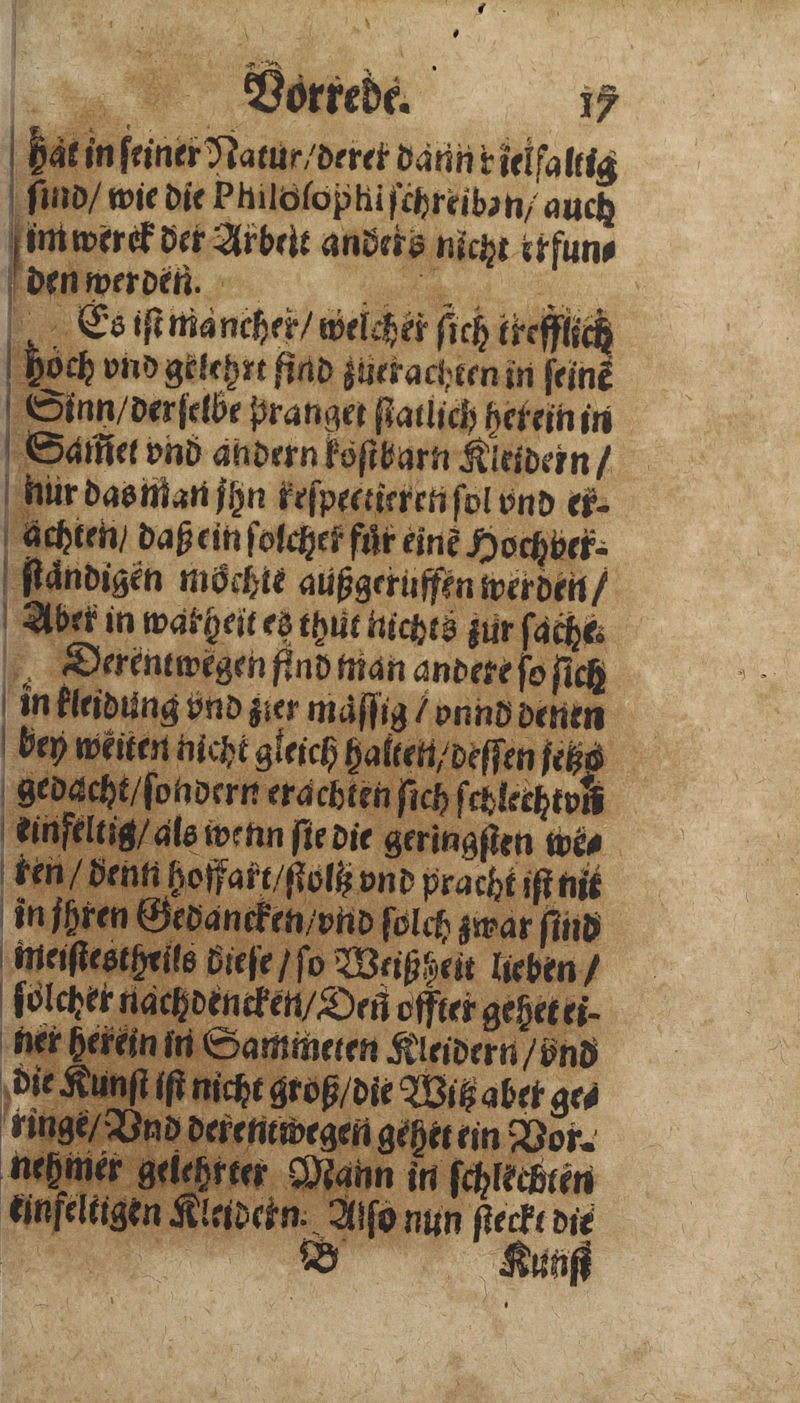 Vorrede. 17
hat in seiner Natur/derer dann vielfaltig
sind/ wie die Philosophi schreiben/ auch
im werck der Arbeit anders nicht erfun-
den werden.
Es ist mancher/ welcher sich trefflich
hoch vnd gelehrt sind zuerachten in seinē
Sinn/derselbe pranget statlich herein in
Sam̃et vnd andern kostbarn Kleidern/
nur das man jhn respectieren sol vnd er-
achten/ daß ein solcher für einē Hochver-
ständigen möchte außgeruffen werden/
Aber in warheit es thut nichts zur sache.
Derentwegen sind man andere so sich
in kleidung vnd zier mässig / vnnd denen
bey weiten nicht gleich halten/dessen jetzo
gedacht/sondern erachten sich schlecht vñ
einfeltig/als wenn sie die geringsten we-
ren/ denn hoffart/stoltz vnd pracht ist nit
in jhren Gedancken/vnd solch zwar sind
meistestheils diese / so Weißheit lieben /
solcher nachdencken/Deñ offter gehet ei-
ner herein in Sammeten Kleidern/vnd
die Kunst ist nicht groß/die Witz aber ge-
ringe/Vnd derentwegen gehet ein Vor-
nehmer gelehrter Mann in schlechten
einfeltigen Kleidern. Also nun steckt die
B Kunst